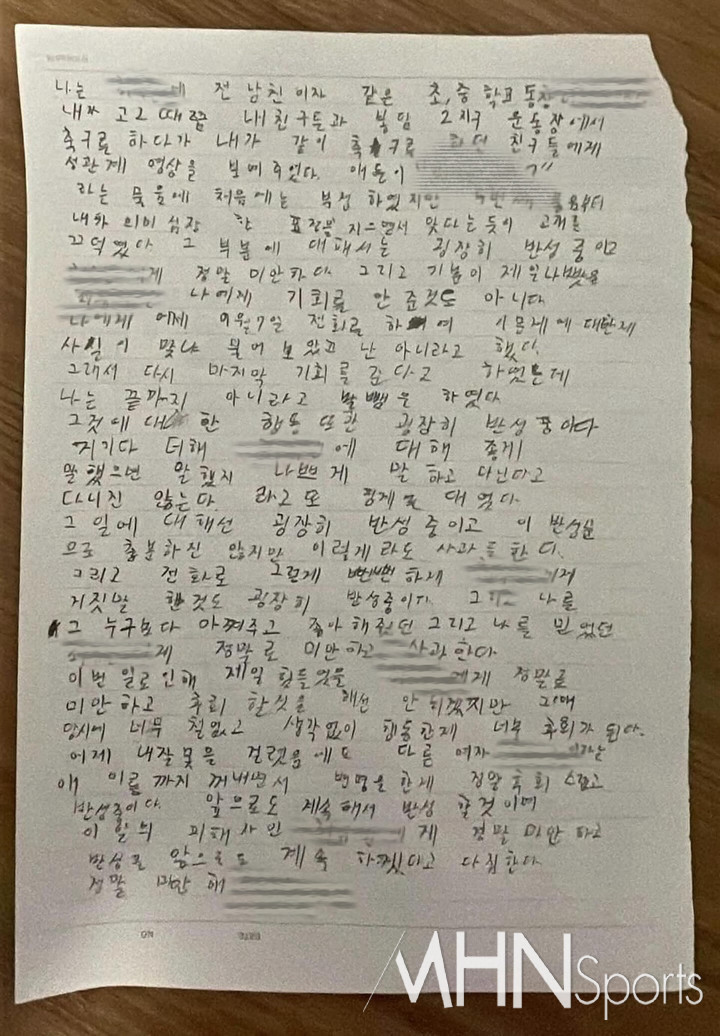 나는 전 남친이자 같은 초,중 학교 동창
내가 고2 때쯤 내 친구들과 북일 2지구 운동장에서
축구를 하다가 내가 같이 축구를 하던 친구들에게
성관계 영상을 보여주었다. 애들이
라는 물음에 처음에는 부정 하였지만 번째 물음부터
내가 의미심장 한 표정을 지으면서 맞다는 듯이 고개를
끄덕였다. 그 부분에 대해서는 굉장히 반성 중이고
게 정말 미안하다. 그리고 기분이 제일 나빴을
나에게 기회를 안 준것도 아니다.
나에게 어제 9월 7일 전화로 하여 이 문제에 대한게
사실이 맞냐 물어 보았고 난 아니라고 했다.
그래서 다시 마지막 기회를 준다고 하였는데
나는 끝까지 아니라고 발뺌을 하였다
그것에 대한 행동 또한 굉장히 반성 중이다
거기다 더해 에 대해 좋게
말했으면 말했지 나쁘게 말하고 다닌다고
다니진 않는다. 라고 또 핑계를 대였다.
그 일에 대해선 굉장히 반성 중이고 이 반성문
으로 충분하진 않지만 이렇게라도 사과를 한다.
그리고 전화로 그렇게 뻔뻔하게 에게
거짓말 한것도 굉장히 반성중이다. 그리고 나를
그 누구보다 아껴주고 좋아해줬던 그리고 나를 믿었던
게 정말로 미안하고 사과한다
이번 일로 인해 제일 힘들었을 에게 정말로
미안하고 후회 할짓을 해선 안 되겠지만 그때
당시에 너무 철없고 생각없이 행동한게 너무 후회가 된다.
어제 내 잘못을 걸렸음에도 다른 여자
애 이름까지 꺼내면서 변명을 한게 정말 후회 스럽고
반성중이다. 앞으로도 계속해서 반성 할 것이며
이 일의 피해자인 에게 정말 미안하고
반성을 앞으로도 계속 하겠다고 다짐한다
정말 미안해
MHN Sports